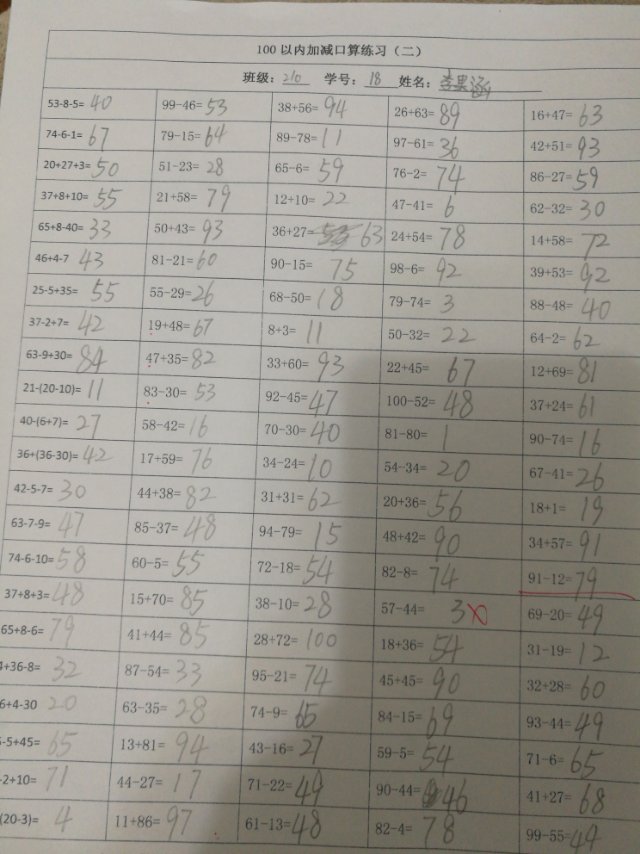 100 以内加减口算练习（二）
班级：210 学号：18 姓名：李果涵
53-8-5= 40 99-46= 53 38+56= 94 26+63= 89 16+47= 63
74-6-1= 67 79-15= 64 89-78= 11 97-61= 36 42+51= 93
20+27+3= 50 51-23= 28 65-6= 59 76-2= 74 86-27= 59
37+8+10= 55 21+58= 79 12+10= 22 47-41= 6 62-32= 30
65+8-40= 33 50+43= 93 36+27= 63 24+54= 78 14+58= 72
46+4-7 43 81-21= 60 90-15= 75 98-6= 92 39+53= 92
25-5+35= 55 55-29= 26 68-50= 18 79-74= 3 88-48= 40
37-2+7= 42 19+48= 67 8+3= 11 50-32= 22 64-2= 62
63-9+30= 84 47+35= 82 33+60= 93 22+45= 67 12+69= 81
21-(20-10)= 11 83-30= 53 92-45= 47 100-52= 48 37+24= 61
40-(6+7)= 27 58-42= 16 70-30= 40 81-80= 1 90-74= 16
36+(36-30)= 42 17+59= 76 34-24= 10 54-34= 20 67-41= 26
42-5-7= 30 44+38= 82 31+31= 62 20+36= 56 18+1= 19
63-7-9= 47 85-37= 48 94-79= 15 48+42= 90 34+57= 91
74-6-10= 58 60-5= 55 72-18= 54 82-8= 74 91-12= 79
37+8+3= 48 15+70= 85 38-10= 28 57-44= 3 69-20= 49
65+8-6= 79 41+44= 85 28+72= 100 18+36= 54 31-19= 12
+36-8= 32 87-54= 33 95-21= 74 45+45= 90 32+28= 60
6+4-30 20 63-35= 28 74-9= 65 84-15= 69 93-44= 49
-5+45= 65 13+81= 94 43-16= 27 59-5= 54 71-6= 65
-2+10= 71 44-27= 17 71-22= 49 90-44= 46 41+27= 68
(20-3)= 4 11+86= 97 61-13= 48 82-4= 78 99-55= 49